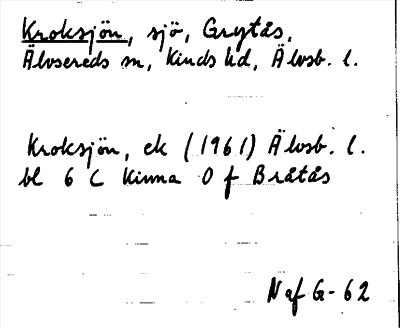 Kroksjön, sjö, Grytås,
Älvsereds sn, Kinds hd, Älvsb. l.
Kroksjön, ek (1961) Älvsb. l.
bl 6 C Kinna O f Bråtås
N af G-62